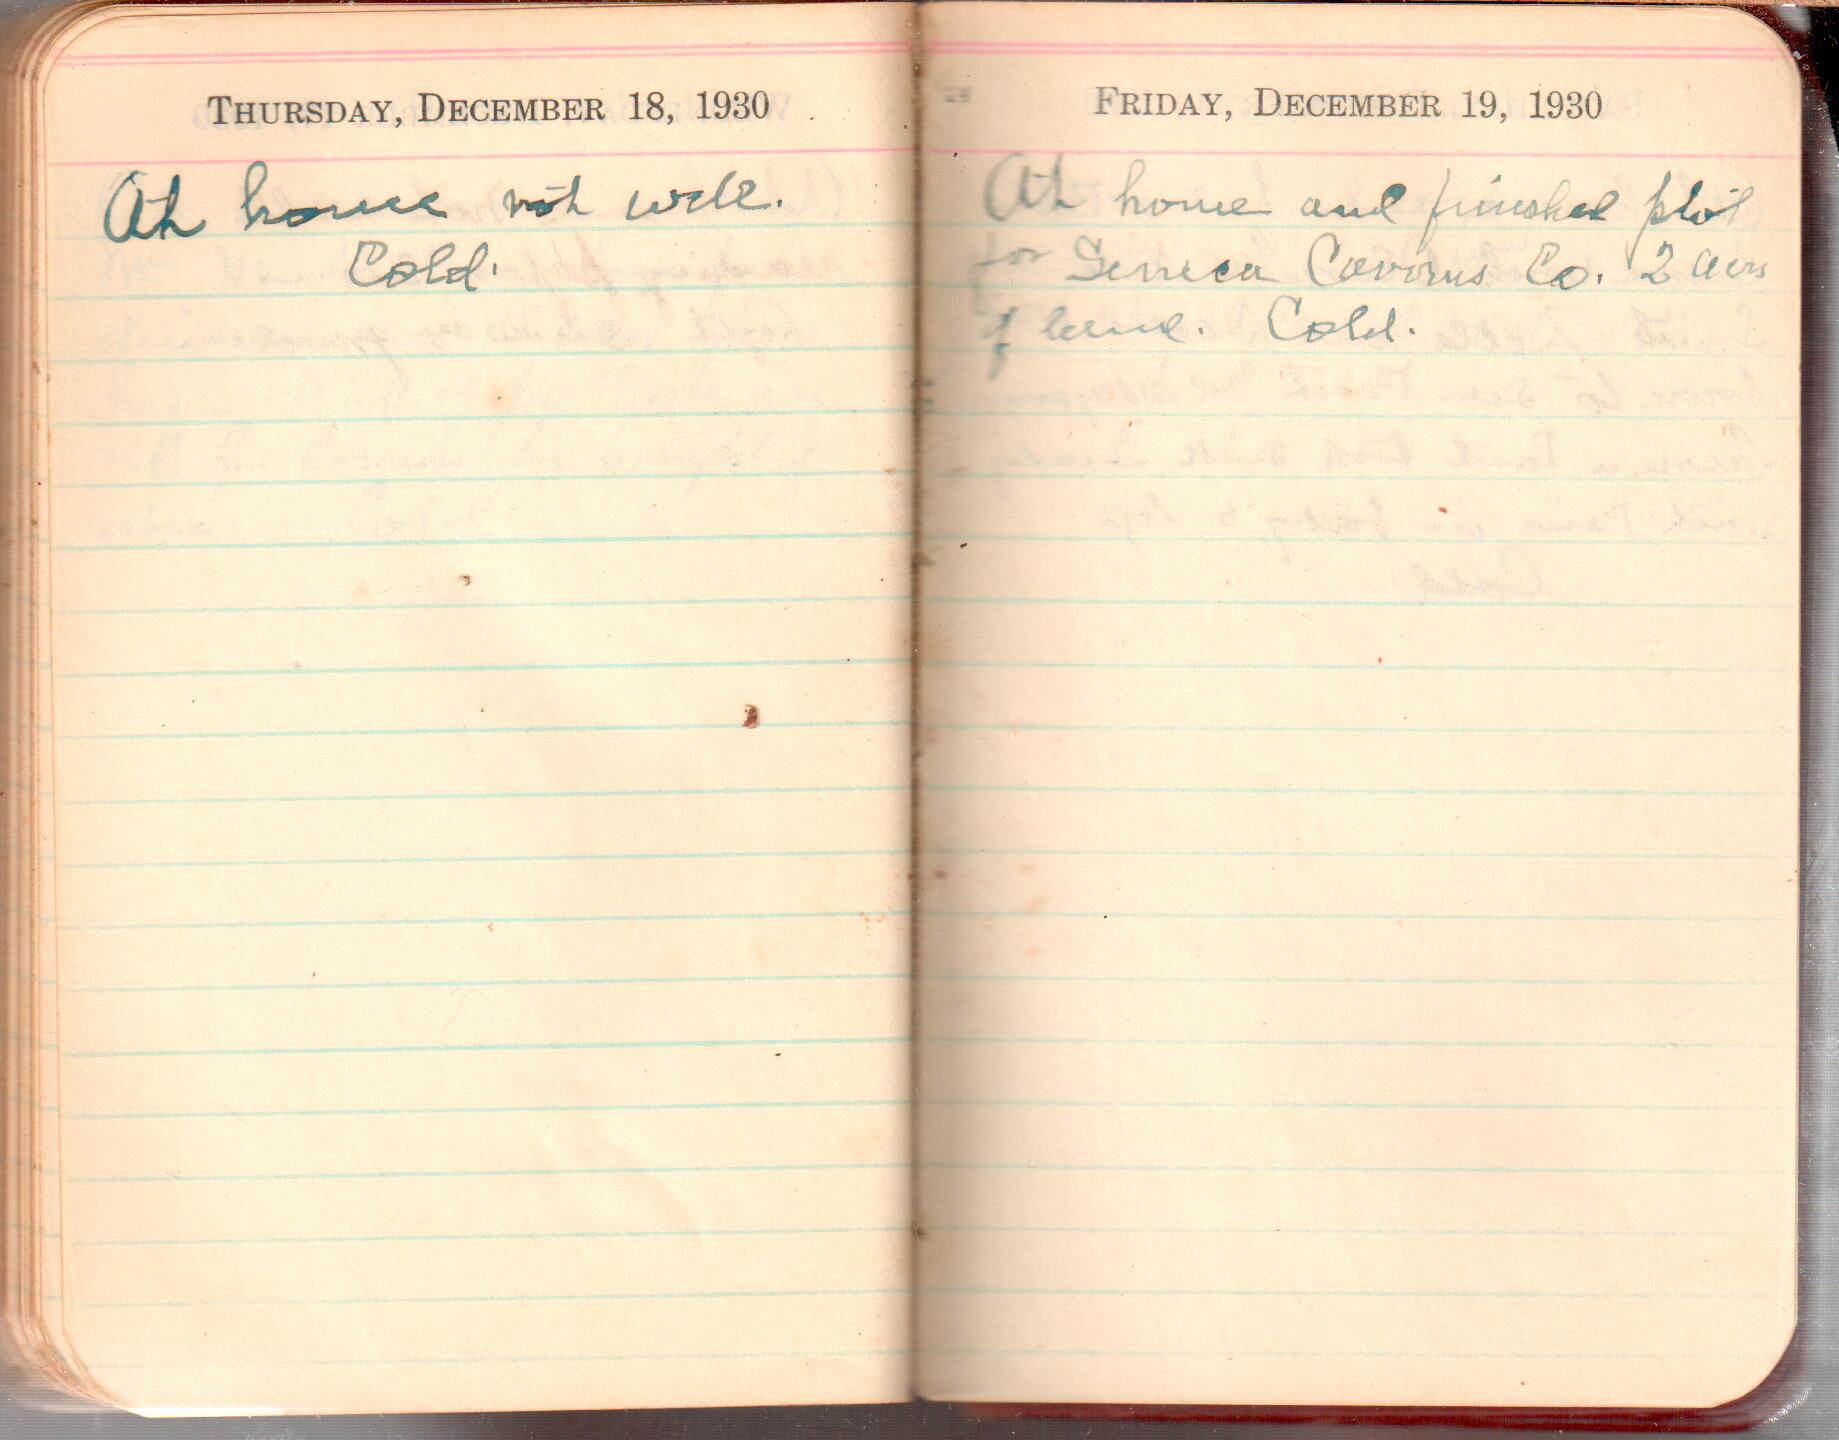 THURSDAY, DECEMBER 18, 1930
At home not well.
Cold.
FRIDAY, DECEMBER 19, 1930
At home and finished plot
for Seneca Caverns Co. 2 acrs
of land. Cold.